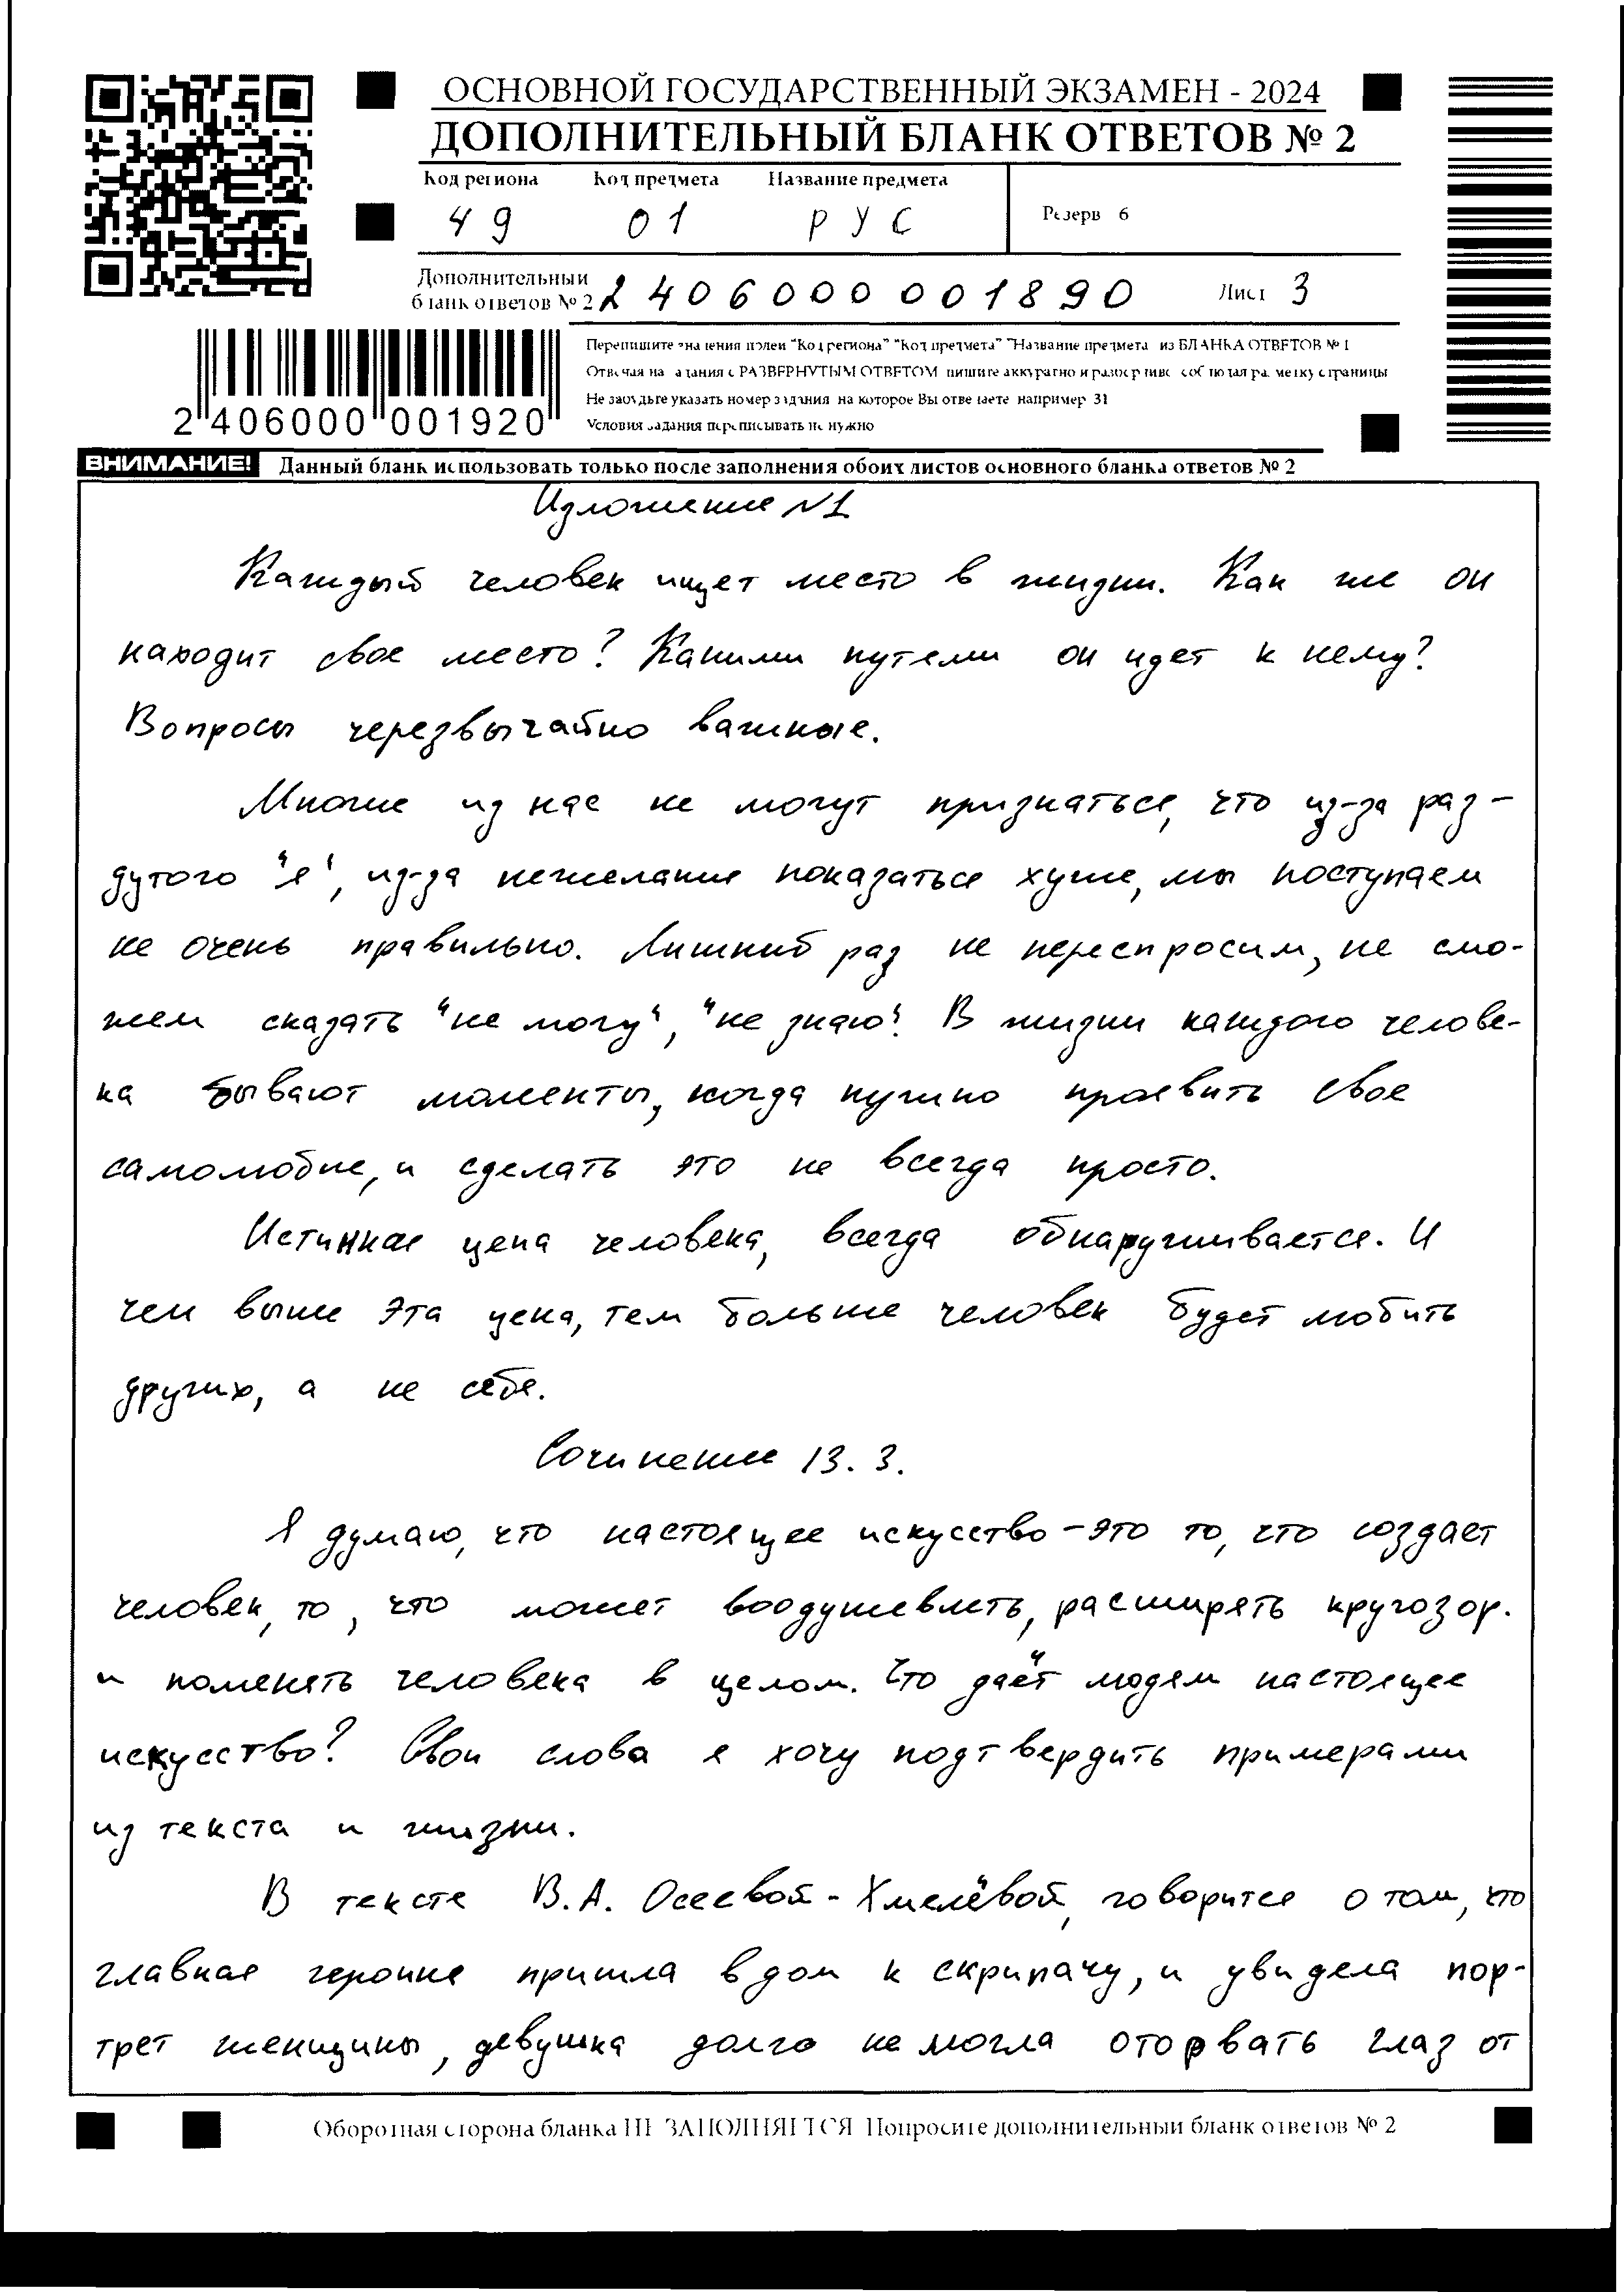 ОСНОВНОЙ ГОСУДАРСТВЕННЫЙ ЭКЗАМЕН - 2024
ДОПОЛНИТЕЛЬНЫЙ БЛАНК ОТВЕТОВ № 2
Код региона Код предмета Название предмета
Резерв 6
49 01 РУС
Дополнительный
бланк ответов № 2 2406000001890 Лист 3
Перепишите значения полей "Код региона" "Код предмета" "Название предмета" из БЛАНКА ОТВЕТОВ № 1
Отвечая на задания с РАЗВЕРНУТЫМ ОТВЕТОМ пишите аккуратно и разборчиво соблюдая разметку страницы
Не забудьте указать номер задания на которое Вы отвечаете например 31
Условия задания переписывать не нужно
2 406000 001920
ВНИМАНИЕ! Данный бланк использовать только после заполнения обоих листов основного бланка ответов № 2
Изложение №1
Каждый человек ищет место в жизни. Как же он
находит свое место? Какими путями он идет к нему?
Вопросы черезвычайно важные.
Многие из нас не могут признаться, что из-за раз-
дутого "я", из-за нежелания показаться хуже, мы поступаем
не очень правильно. Лишний раз не переспросим, не смо-
жем сказать "не могу", "не знаю". В жизни каждого челове-
ка бывают моменты, когда нужно проявить свое
самолюбие, и сделать это не всегда просто.
Истинная цена человека, всегда обнаруживается. И
чем выше эта цена, тем больше человек будет любить
других, а не себя.
Сочинение 13.3.
Я думаю, что настоящее искусство - это то, что создает
человек, то, что может воодушевлять, расширять кругозор.
и поменять человека в целом. Что даёт людям настоящее
искусство? Свои слова я хочу подтвердить примерами
из текста и жизни.
В тексте В.А. Осеевой-Хмелёвой, говорится о том, что
главная героиня пришла в дом к скрипачу, и увидела пор-
трет женщины, девушка долго не могла оторвать глаз от
Оборотная сторона бланка НЕ ЗАПОЛНЯЕТСЯ Попросите дополнительный бланк ответов № 2